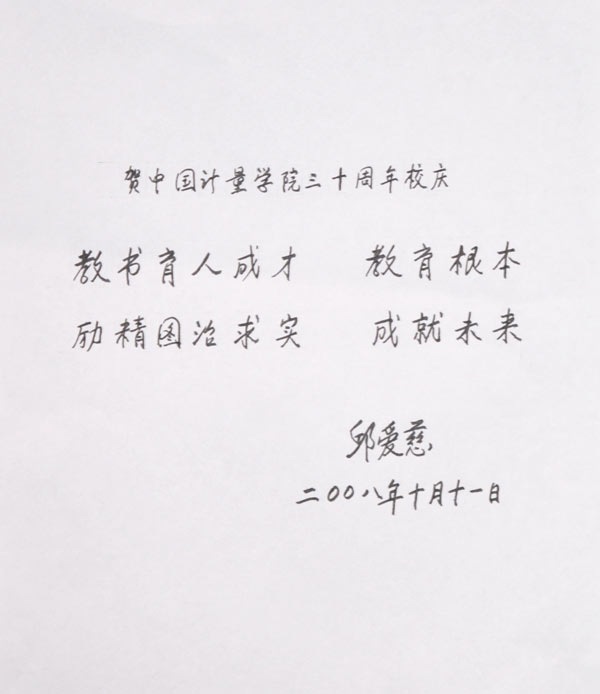 贺中国计量学院三十周年校庆
教书育人成才 教育根本
励精图治求实 成就未来
邱爱慈
二〇〇八年十月十一日